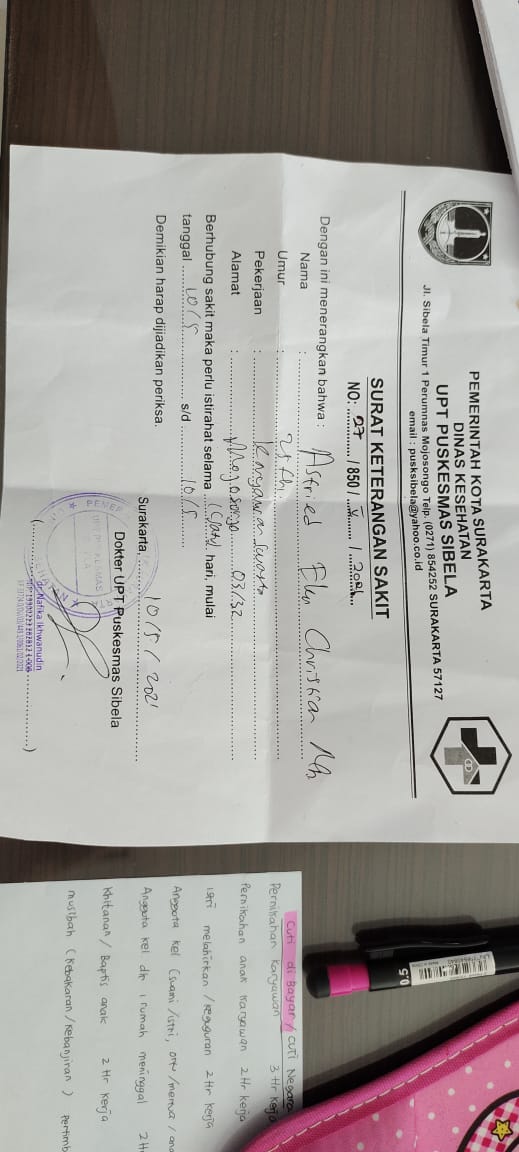 PEMERINTAH KOTA SURAKARTA
DINAS KESEHATAN
UPT PUSKESMAS SIBELA
Jl. Sibela Timur 1 Perumnas Mojosongo Telp. (0271) 854252 SURAKARTA 57127
email : pusksibela@yahoo.co.id
SURAT KETERANGAN SAKIT
NO: 27 / 850 / V / 2021
Dengan ini menerangkan bahwa :
Nama : Astried Christian
Umur : 25 th
Pekerjaan : Karyawan Swasta
Alamat : Mojosongo 03/32
Berhubung sakit maka perlu istirahat selama 1 (satu) hari, mulai
tanggal 10/5 s/d 10/5
Demikian harap dijadikan periksa.
Surakarta, 10/5/2021
Dokter UPT Puskesmas Sibela
dr. Nafika Ikhwanudin
Cuti di Bayar / cuti Negara
Pernikahan Karyawan 3 Hr Kerja
Pernikahan anak Karyawan 2 Hr kerja
istri melahirkan / keguguran 2 Hr kerja
Anggota kel (suami / istri, ortu / mertua / ana
Anggota kel dlm 1 rumah meninggal 2 H
Khitanan / Baptis anak 2 Hr kerja
musibah (kebakaran / kebanjiran) pertimb
0.5